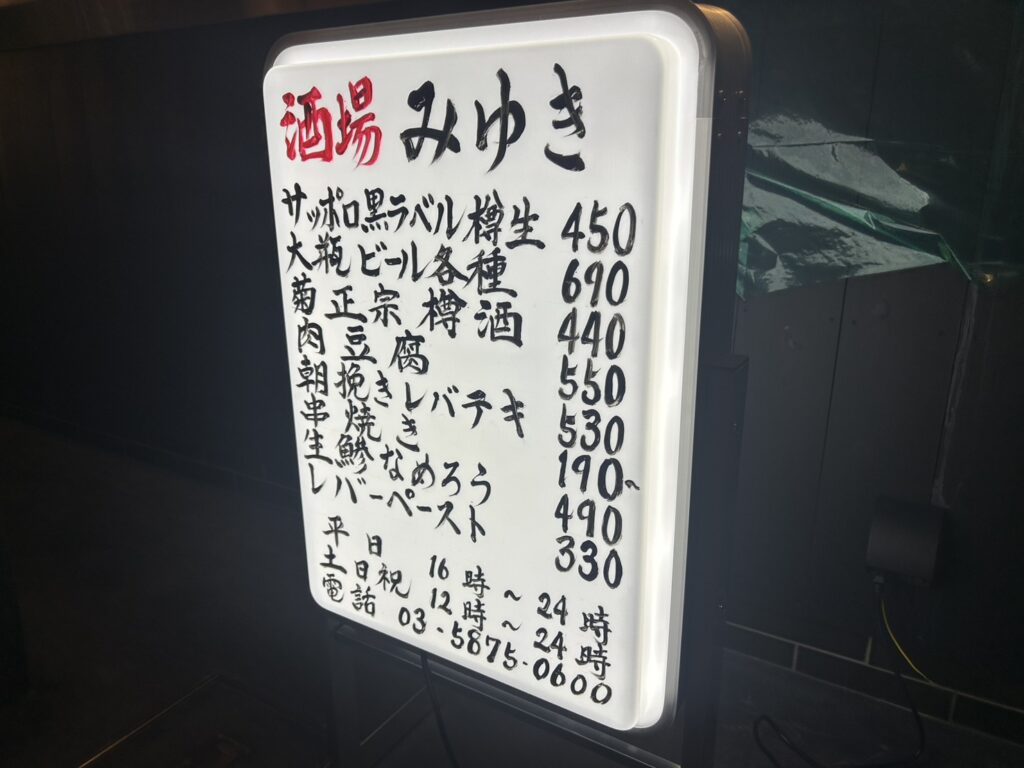 酒場 みゆき
サッポロ黒ラベル樽生 450
大瓶ビール各種 690
菊正宗 樽酒 440
肉豆腐 550
朝挽きレバテキ 530
串焼き 190〜
生鯵なめろう 490
レバーペースト 330
平日 16時〜24時
土日祝 12時〜24時
電話 03-5875-0600